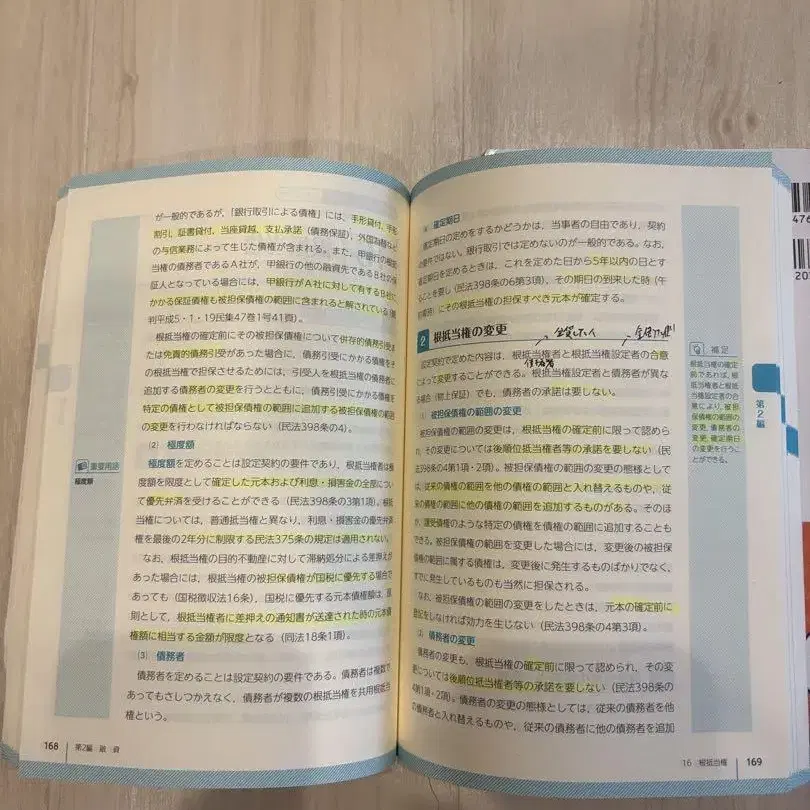 が一般的であるが、「銀行取引による債権」には、手形貸付、手形
割引、証書貸付、当座貸越、支払承諾（債務保証）、外国為替など
の与信業務によって生じた債権が含まれる。また、甲銀行の根抵
当権の債務者であるA社が、甲銀行の他の融資先であるB社の保
証人となっている場合には、甲銀行がA社に対して有するB社に
かかる保証債権も被担保債権の範囲に含まれると解されている（最
判平成5・1・19民集47巻1号41頁）。
根抵当権の確定前にその被担保債権について併存的債務引受ま
たは免責的債務引受があった場合に、債務引受にかかる債権をそ
の根抵当権で担保させるためには、引受人を根抵当権の債務者に
追加する債務者の変更を行うとともに、債務引受にかかる債権を
特定の債権として被担保債権の範囲に追加する被担保債権の範囲
の変更を行わなければならない（民法398条の4）。
(2) 極度額
重要用語
極度額
極度額を定めることは設定契約の要件であり、根抵当権者は極
度額を限度として確定した元本および利息・損害金の全部につい
て優先弁済を受けることができる（民法398条の3第1項）。根抵
当権については、普通抵当権と異なり、利息・損害金の優先弁済
権を最後の2年分に制限する民法375条の規定は適用されない。
なお、根抵当権の目的不動産に対して滞納処分による差押えが
あった場合には、根抵当権の被担保債権が国税に優先する場合で
あっても（国税徴収法16条）、国税に優先する元本債権額は、原
則として、根抵当権者に差押えの通知書が送達された時の元本債
権額に相当する金額が限度となる（同法18条1項）。
(3) 債務者
債務者を定めることは設定契約の要件である。債務者は複数で
あってもさしつかえなく、債務者が複数の根抵当権を共用根抵当
権という。
168 第2編 融 資
(4) 確定期日
確定期日の定めをするかどうかは、当事者の自由であり、契約
の要件ではない。銀行取引では定めないのが一般的である。なお、
確定期日を定めるときは、これを定めた日から5年以内の日とす
ることを要し（民法398条の6第3項）、その期日の到来した時（午
前零時）にその根抵当権の担保すべき元本が確定する。
2 根抵当権の変更
設定契約で定めた内容は、根抵当権者と根抵当権設定者の合意
によって変更することができる。根抵当権設定者と債務者が異な
る場合（物上保証）でも、債務者の承諾は要しない。
(1) 被担保債権の範囲の変更
被担保債権の範囲の変更は、根抵当権の確定前に限って認めら
れ、その変更については後順位抵当権者等の承諾を要しない（民
法398条の4第1項・2項）。被担保債権の範囲の変更の態様として
は、従来の債権の範囲を他の債権の範囲と入れ替えるものや、従
来の債権の範囲に他の債権の範囲を追加するものがある。そのほ
か、譲受債権のような特定の債権を債権の範囲に追加することも
できる。被担保債権の範囲を変更した場合には、変更後の被担保
債権の範囲に属する債権は、変更後に発生するものばかりでなく、
すでに発生しているものも当然に担保される。
なお、被担保債権の範囲の変更をしたときは、元本の確定前に
登記をしなければ効力を生じない（民法398条の4第3項）。
(2) 債務者の変更
債務者の変更も、根抵当権の確定前に限って認められ、その変
更については後順位抵当権者等の承諾を要しない（民法398条の
4第1項・2項）。債務者の変更の態様としては、従来の債務者を他
の債務者と入れ替えるものや、従来の債務者に他の債務者を追加
補足
根抵当権の確定
前であれば、根
抵当権者と根抵
当権設定者の合
意により、被担
保債権の範囲の
変更、債務者の
変更、確定期日
の変更を行うこ
とができる。
第2編
16 根抵当権 169